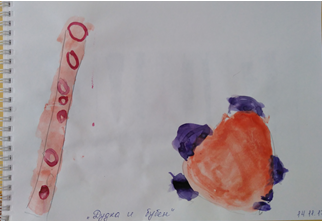 „Дудка и бубен"
14.11.1